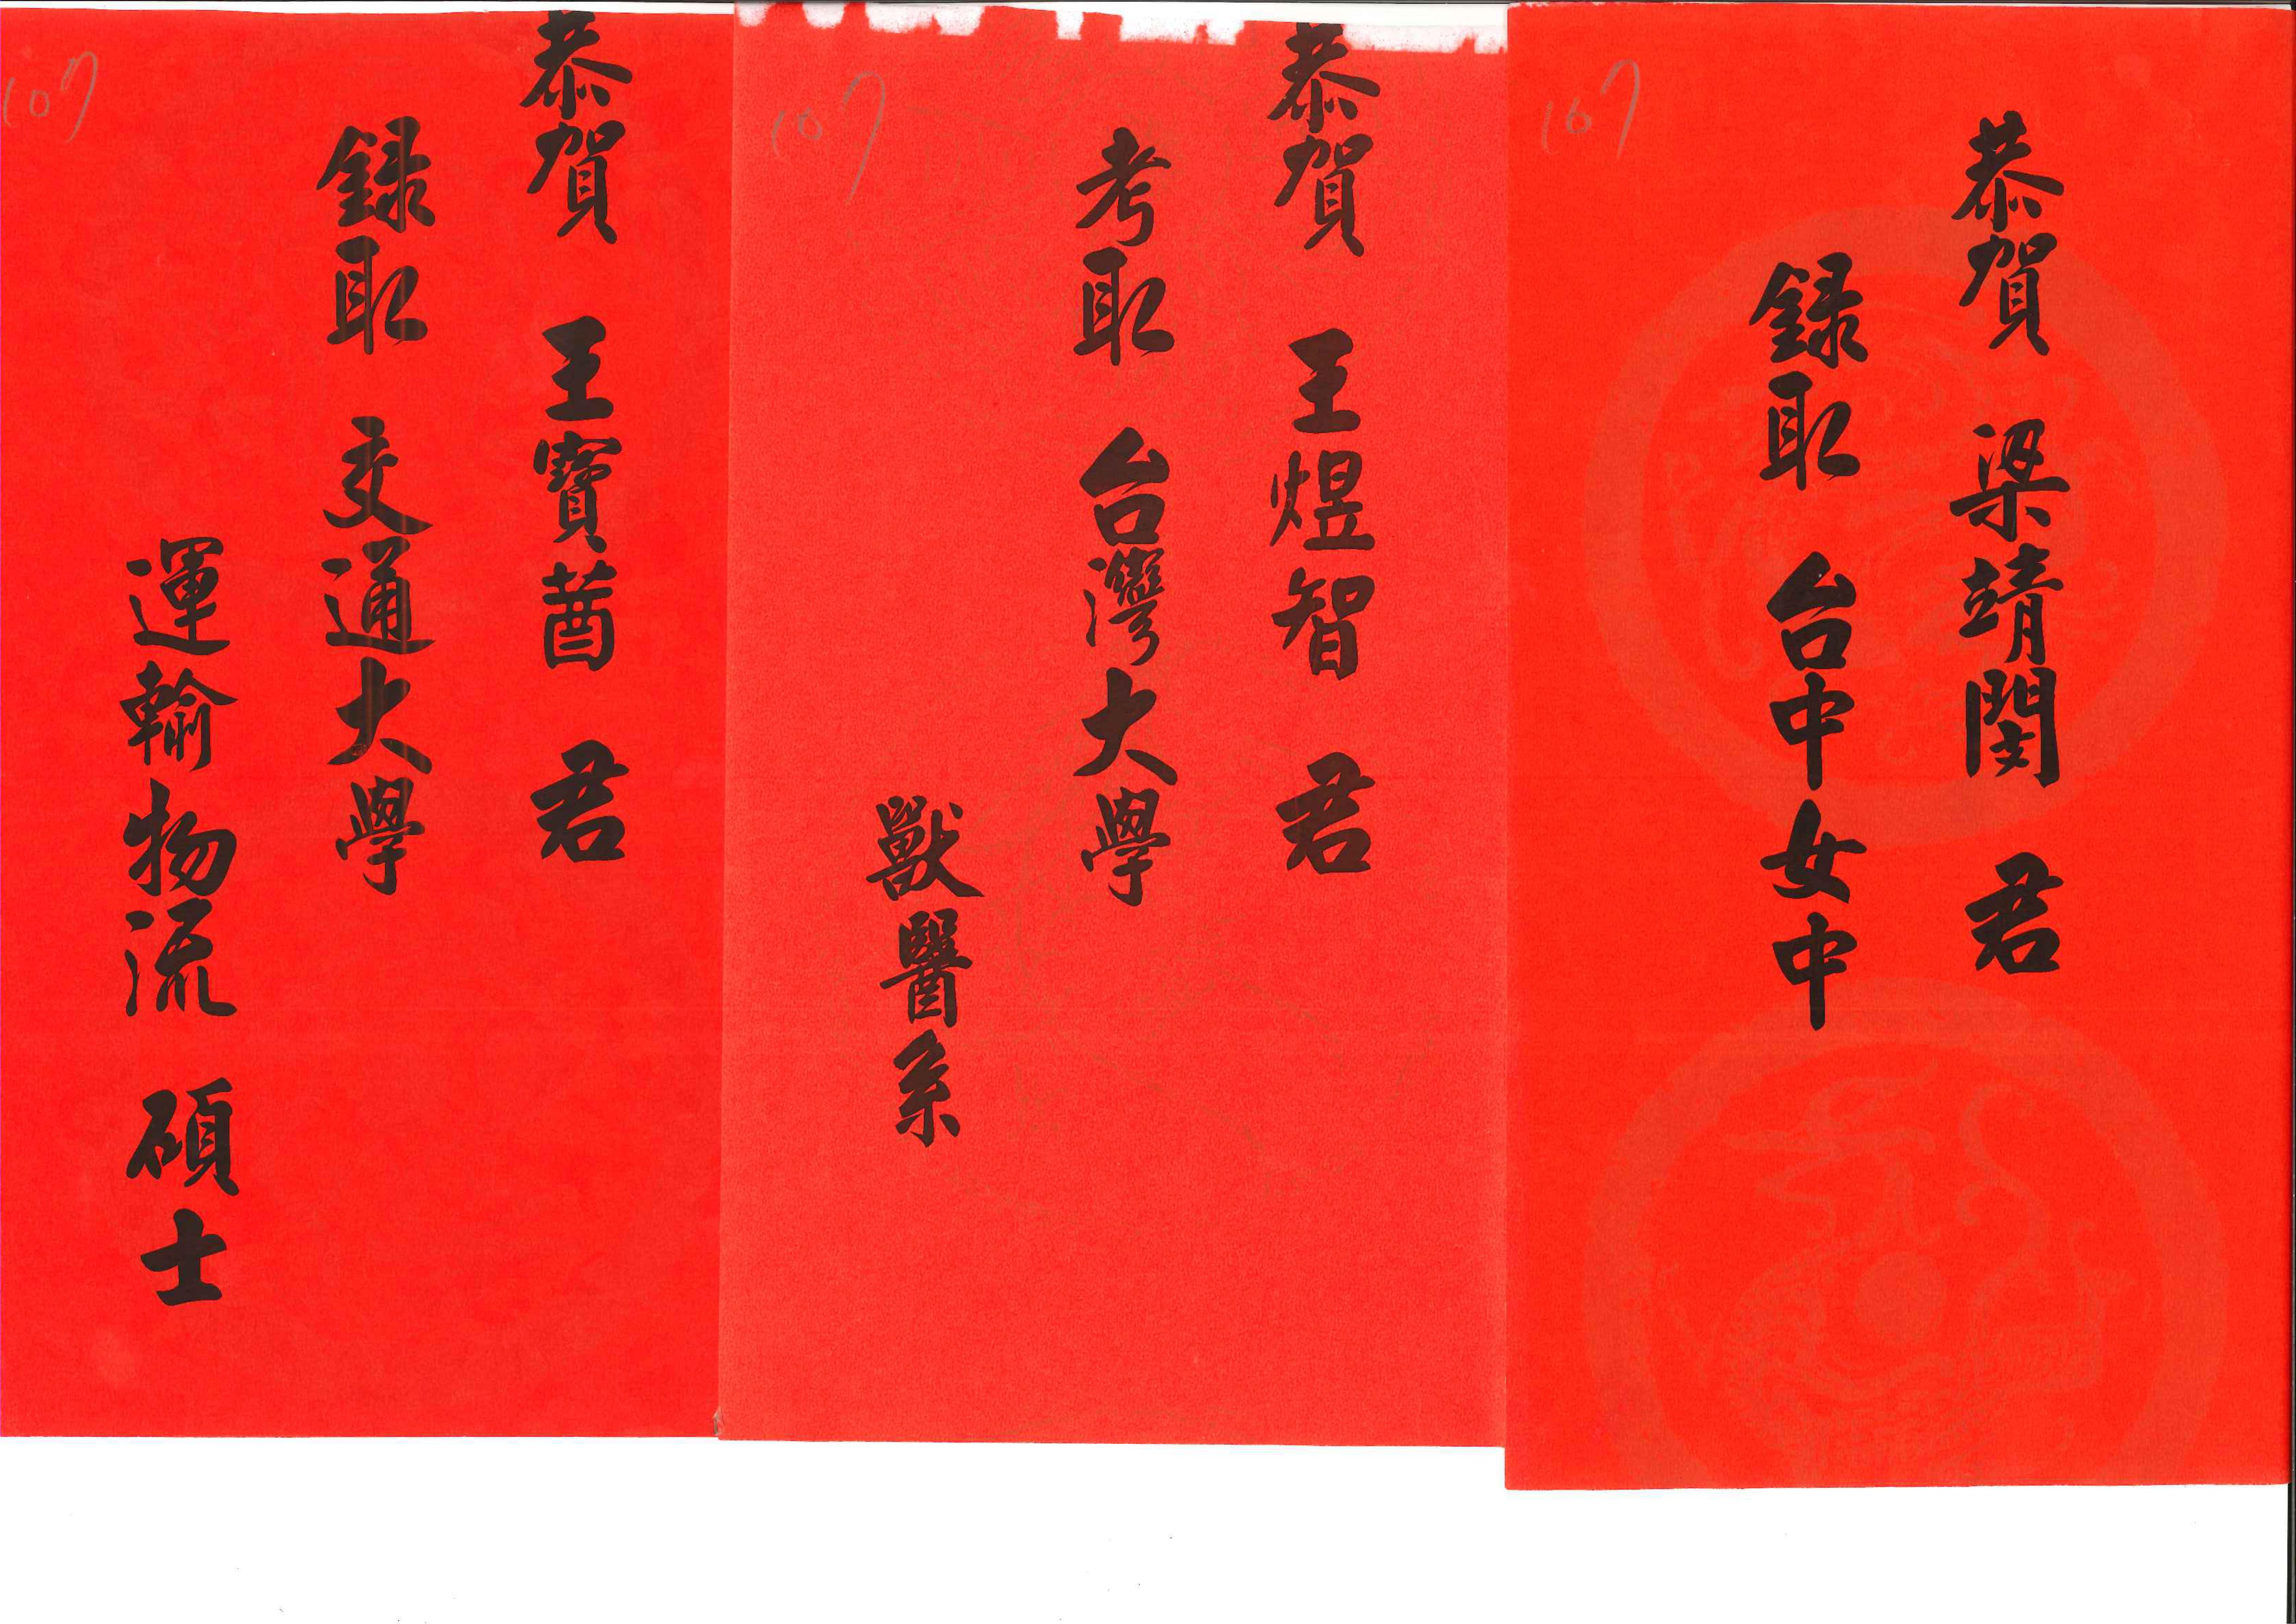 107
恭賀 梁靖閔 君
録取 台中女中
107
恭賀 王煜智 君
考取 台灣大學
獸醫系
107
恭賀 王寶萻 君
録取 交通大學
運輸物流 碩士